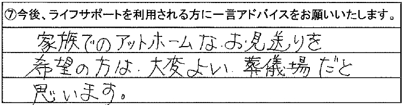 ⑦今後、ライフサポートを利用される方に一言アドバイスをお願いいたします。
家族でのアットホームな お見送りを
希望の方は 大変よい 葬儀場だと
思います。